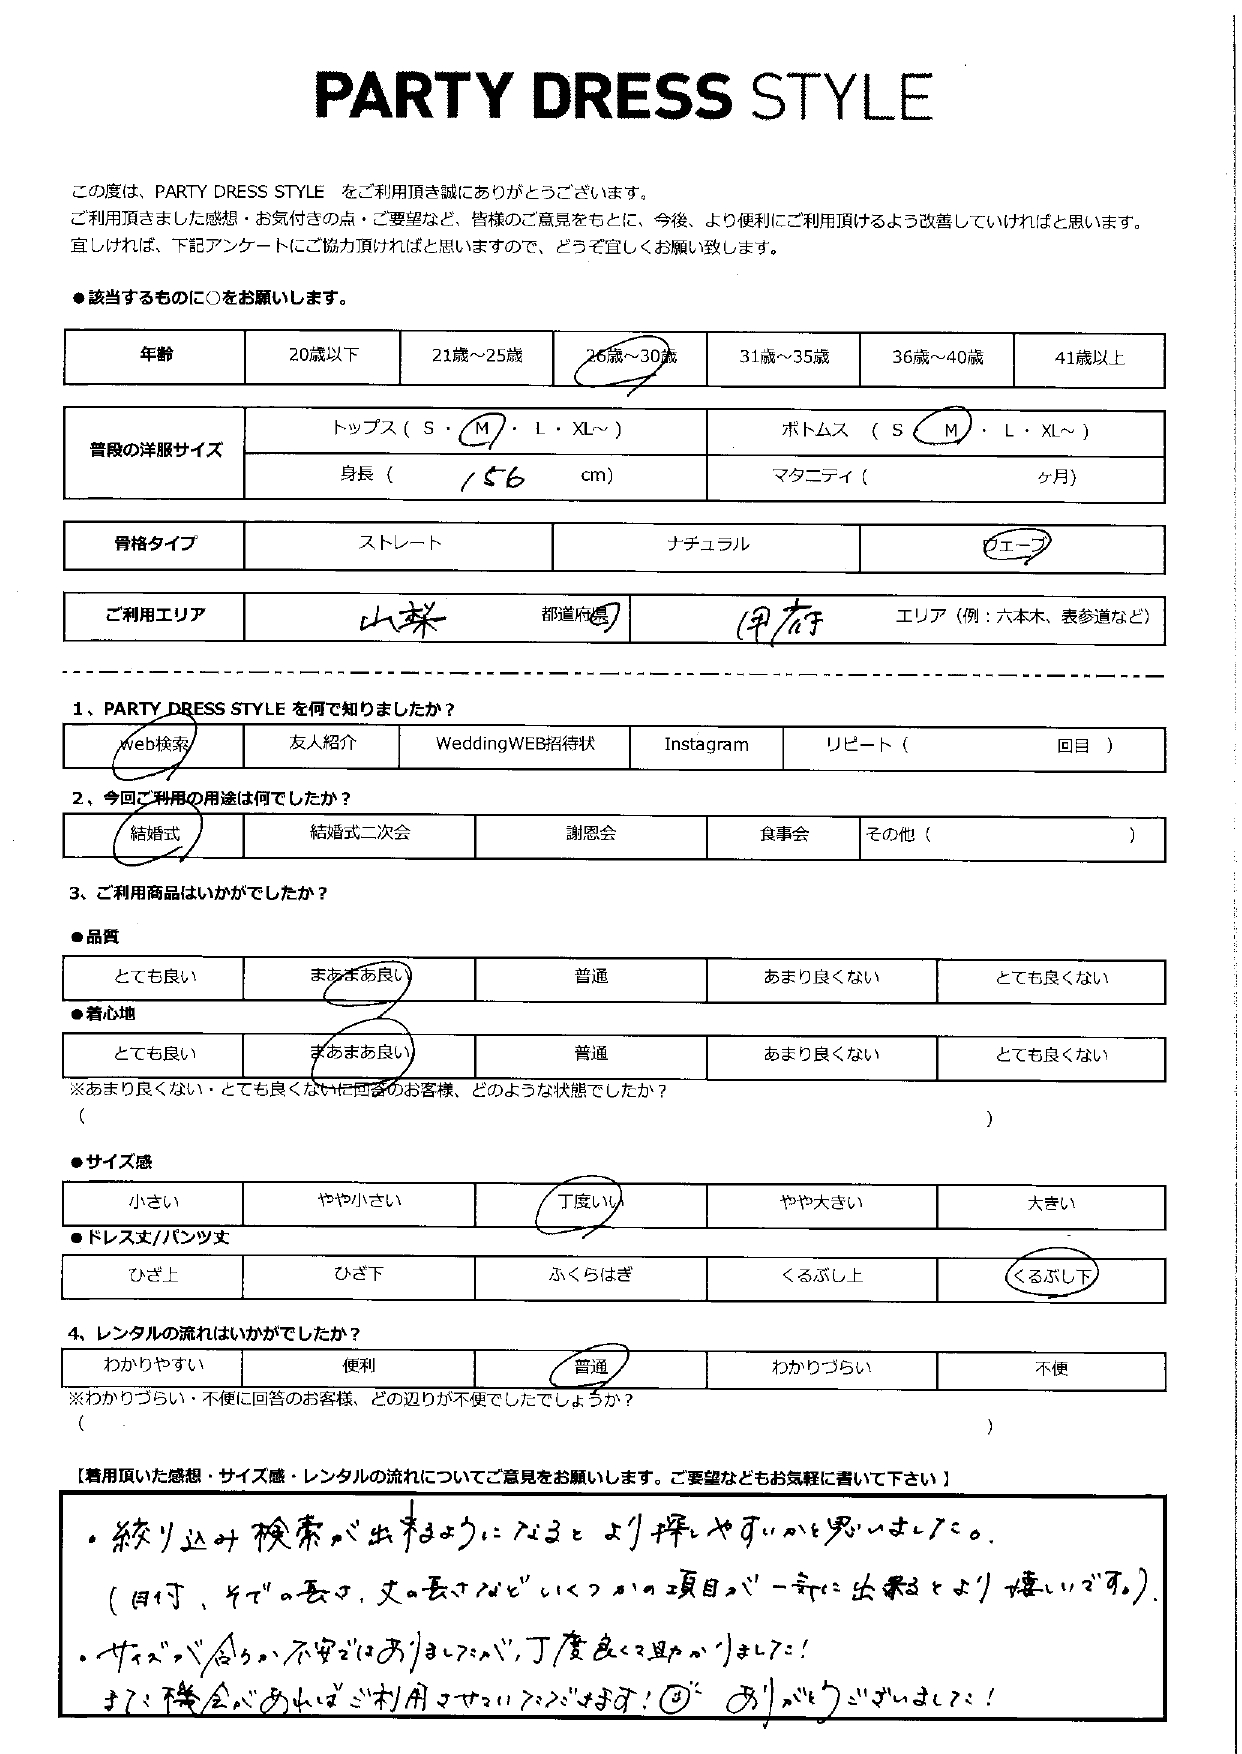 PARTY DRESS STYLE
この度は、PARTY DRESS STYLE をご利用頂き誠にありがとうございます。
ご利用頂きました感想・お気付きの点・ご要望など、皆様のご意見をもとに、今後、より便利にご利用頂けるよう改善していければと思います。
宜しければ、下記アンケートにご協力頂ければと思いますので、どうぞ宜しくお願い致します。
●該当するものに○をお願いします。
年齢 20歳以下 21歳～25歳 26歳～30歳 31歳～35歳 36歳～40歳 41歳以上
普段の洋服サイズ トップス ( S ・ M ・ L ・ XL～ ) ボトムス ( S ・ M ・ L ・ XL～ )
身長 ( 156 cm) マタニティ ( ヶ月)
骨格タイプ ストレート ナチュラル ウェーブ
ご利用エリア 山梨 都道府県 甲府 エリア（例：六本木、表参道など）
1、PARTY DRESS STYLE を何で知りましたか？
Web検索 友人紹介 WeddingWEB招待状 Instagram リピート ( 回目 )
2、今回ご利用の用途は何でしたか？
結婚式 結婚式二次会 謝恩会 食事会 その他 ( )
3、ご利用商品はいかがでしたか？
●品質
とても良い まあまあ良い 普通 あまり良くない とても良くない
●着心地
とても良い まあまあ良い 普通 あまり良くない とても良くない
※あまり良くない・とても良くないに回答のお客様、どのような状態でしたか？
( )
●サイズ感
小さい やや小さい 丁度いい やや大きい 大きい
●ドレス丈/パンツ丈
ひざ上 ひざ下 ふくらはぎ くるぶし上 くるぶし下
4、レンタルの流れはいかがでしたか？
わかりやすい 便利 普通 わかりづらい 不便
※わかりづらい・不便に回答のお客様、どの辺りが不便でしたでしょうか？
( )
【着用頂いた感想・サイズ感・レンタルの流れについてご意見をお願いします。ご要望などもお気軽に書いて下さい 】
・絞り込み検索が出来るようになるとより探しやすいかと思いました。
(日付、そでの長さ、丈の長さなどいくつかの項目が一斉に出来るとより嬉しいです。).
・サイズが合うか不安ではありましたが、丁度良くて助かりました！
また機会があればご利用させていただきます！ ありがとうございました！